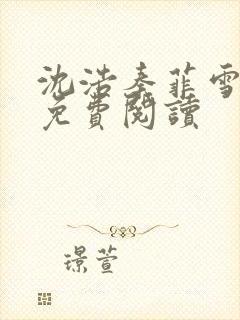 沈浩秦菲雪
免費閱讀
璟萱